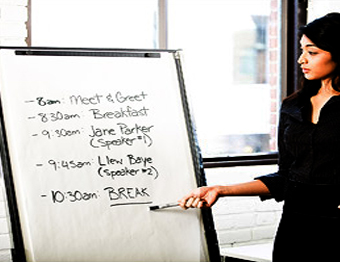 - 8am: Meet & Greet
- 8:30am: Breakfast
- 9:30am: Jane Parker
(speaker #1)
- 9:45am: Llew Baye
(speaker #2)
- 10:30am: BREAK